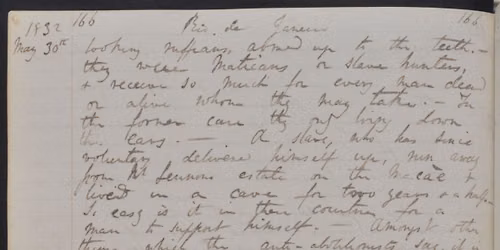 1832 166 Rio de Janeiro 166
May 30th looking ruffians, armed up to the teeth. —
they were Maticans or slave hunters,
& receive so much for every man dead
or alive whom they may take. — In
the former case they only bring down
the ears. — A slave, who has since
voluntarily delivered himself up, run away
from Mr Lennons estate on the Macaè &
lived in a cave for two years & a half. —
So easy is it in these countries for a
man to support himself. — Amongst other
things which the anti-abolitionists say, it is